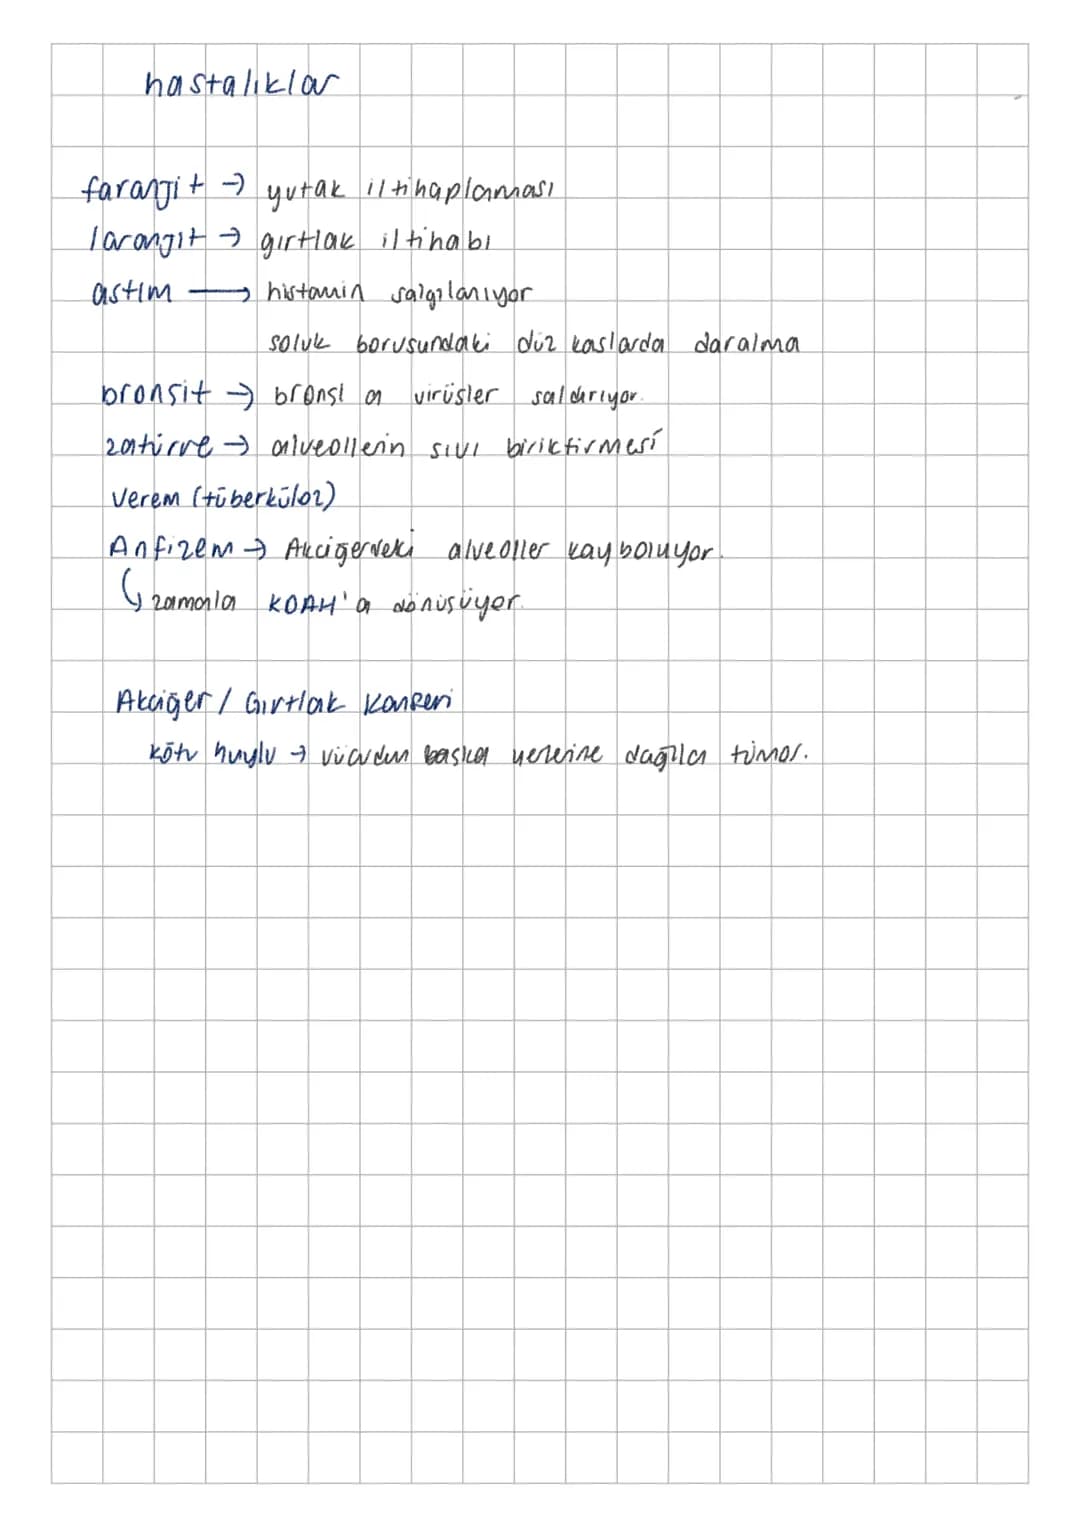 hastalıklar
faranjit → yutak iltihaplanması
laranjit → gırtlak iltihabı
astım → histamin salgılanıyor
soluk borusundaki düz kaslarda daralma
bronşit → bronşla virüsler saldırıyor.
zatürre → alveollerin sıvı biriktirmesi
Verem (tüberküloz)
Anfizem → Akciğerdeki alveoller kayboluyor.
↳ zamanla KOAH'a dönüşüyor.
Akciğer / Gırtlak Kanseri
kötü huylu → vücudun başka yerlerine dağılan tümör.